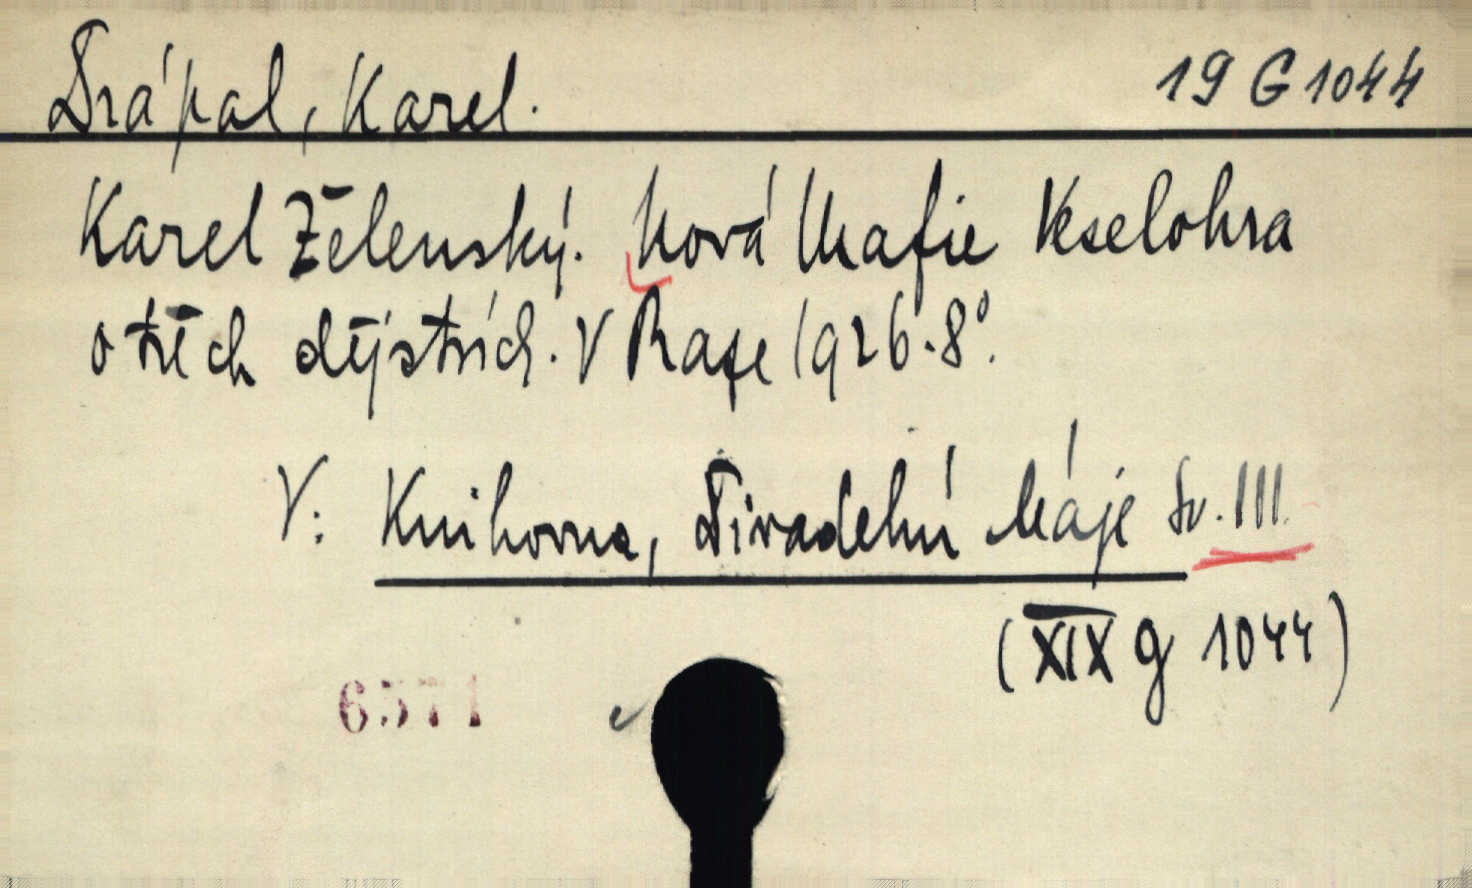 Drápal, Karel. 19 G 1044
Karel Želenský. Nová Mafie Veselohra
o třech dějstvích. V Praze 1926. 8°.
V: Knihovna, Divadelní Máje Sv. III.
(XIX g 1044)
6571